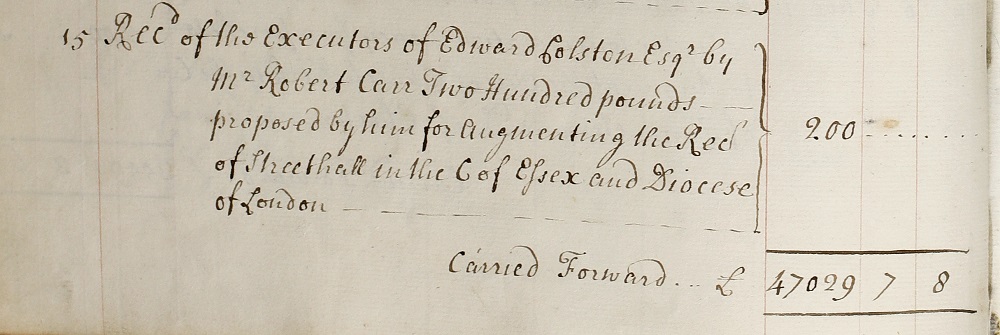 15 Recd of the Executors of Edward Colston Esqr by
Mr Robert Carr Two Hundred pounds
proposed by him for augmenting the Rec 200
of Streethall in the C of Essex and Diocese
of London
Carried Forward... £ 47029 7 8